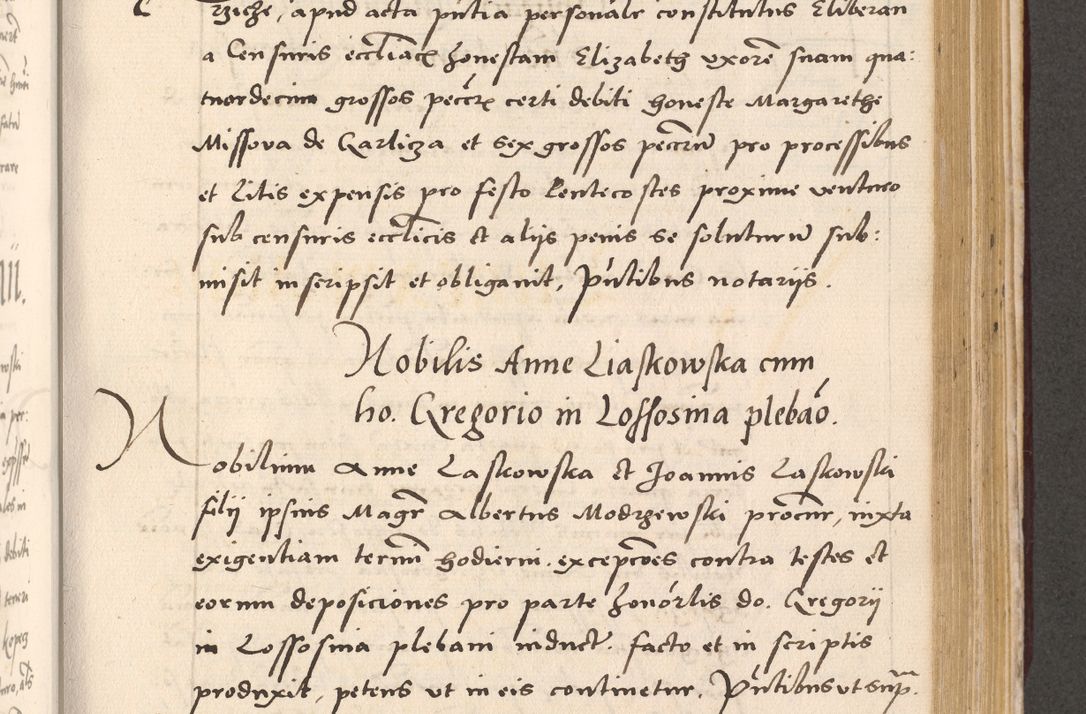 rziche, apud acta pn̄tia personalr constitutus Eliberan
a Censuris eccl̄iac honestam Elizabeth vxorē suam qua:
tuordecim grossos pecc̄r certi debiti honeste Margarethe
Missova de Garlicza et sex grossos pecc̄rū pro processibus
et litis expensis pro festo Pentecostes proxime venturo
sub censuris eccl̄icis et alijs penis se soluturū sub:
misit inscripsit et obligauit, Pn̄tibus notarijs.
Nobilis Anne Liaskowska cum
ho. Gregorio in Lossosina plebāo.
Nobilium Anne Laskowska et Joannis Laskowski
filij ipsius Magr̄ Albertus Modrzewski procūr, iuxta
exigentiam termī hodierni. excepc̄oes contra testes et
eorum deposiciones pro parte honōrlis do. Gregorij
in Lossosina plebani induct. facto et in scriptis
produxit, petens vt in eis continetur. Pn̄tibus vt sup̄.